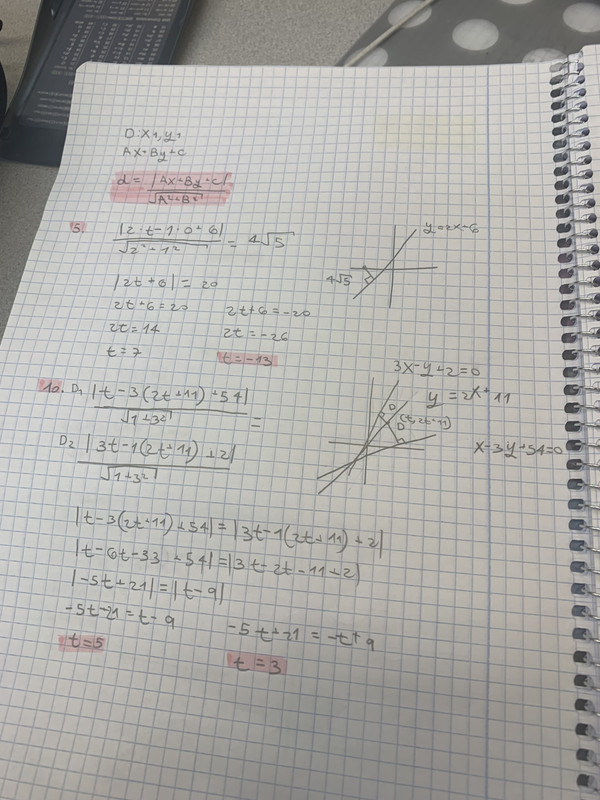 O: x1, y1
Ax+By+C
d = |Ax+By+C| / √A²+B²
5. |2·t-1·0+6| / √2²+1² = 4√5
y=2x+6
4√5
|2t+6| = 20
2t+6=20 2t+6=-20
2t=14 2t=-26
t=7 t=-13
3x-y+2=0
10. D1 |t-3(2t+11)+54| / √1+3² =
y=2x+11
D
(t, 2t+11)
D
D2 |3t-1(2t+11)+2| / √1+3²
x-3y+54=0
|t-3(2t+11)+54| = |3t-1(2t+11)+2|
|t-6t-33+54| = |3t-2t-11+2|
|-5t+21| = |t-9|
-5t-21=t-9 -5t+21=-t+9
t=5 t=3